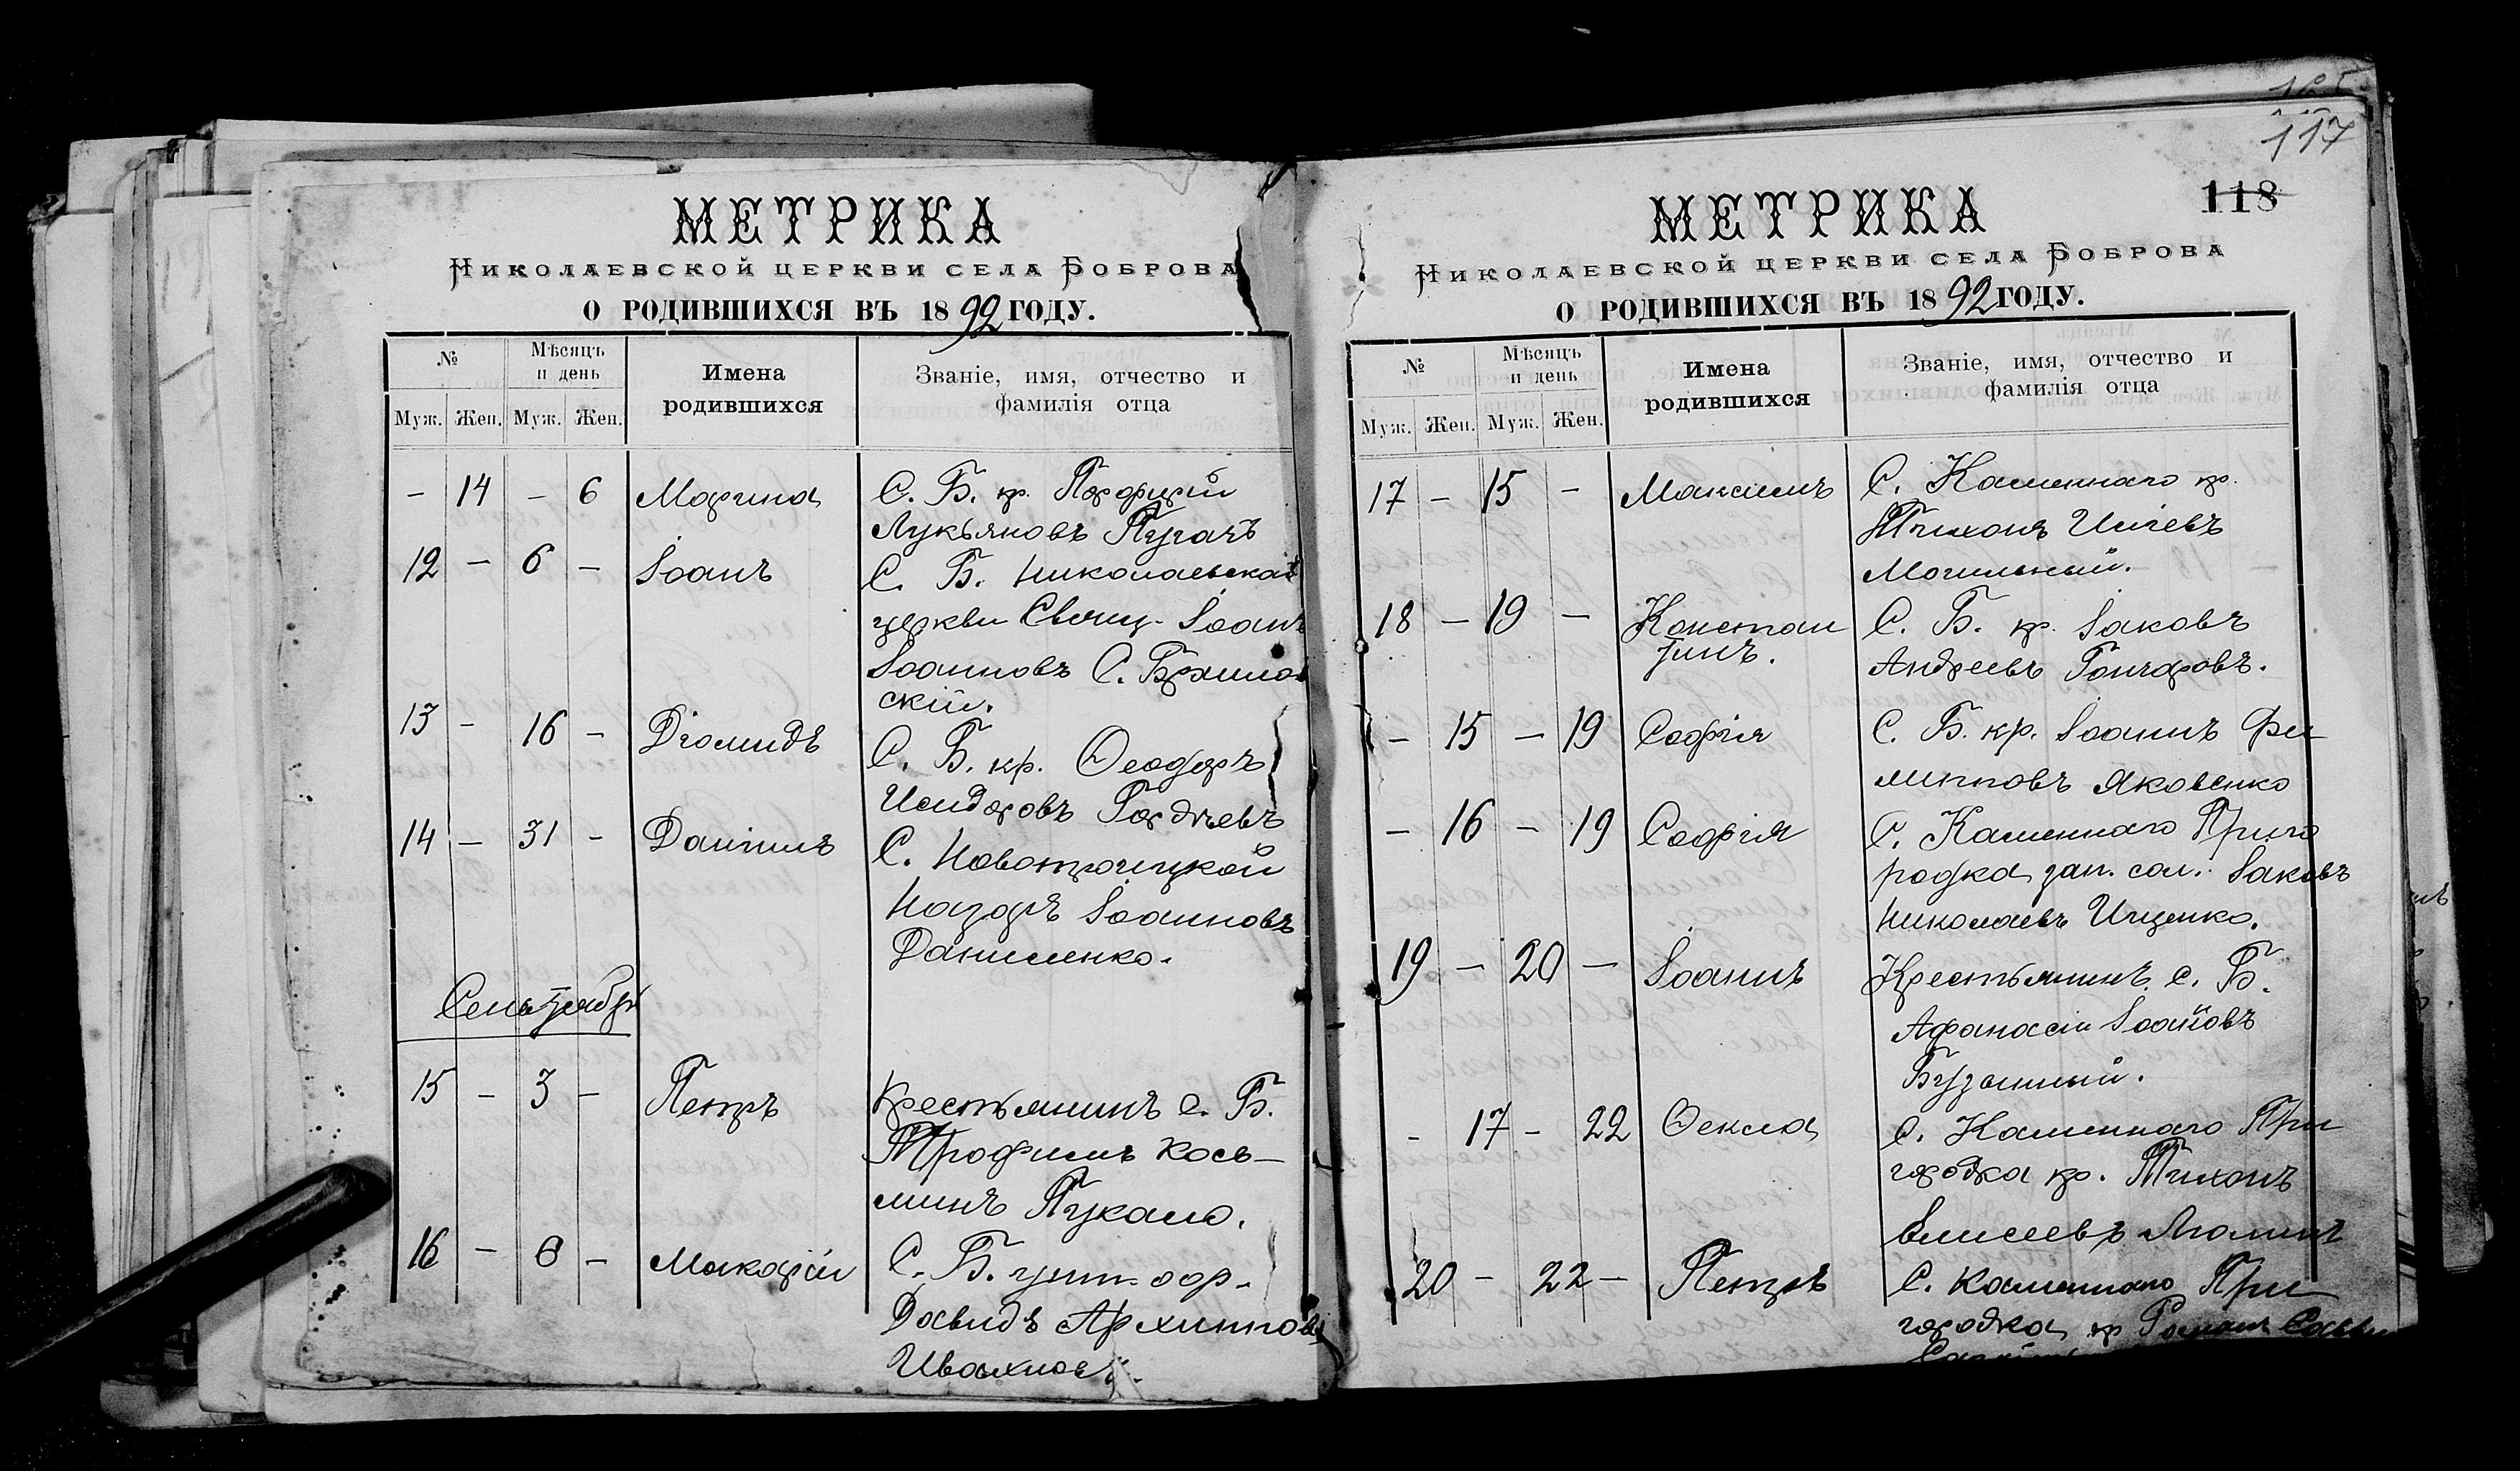 МЕТРИКА
Николаевской церкви села Боброва
О РОДИВШИХСЯ ВЪ 1892 ГОДУ.
№
Мѣсяцъ и день
Имена родившихся
Званіе, имя, отчество и фамилія отца
Муж. Жен. Муж. Жен.
- 14 - 6 Марина С. Б. кр. Порфирій
Лукьяновъ Пугачъ
12 - 6 - Іоанъ С. Б. Николаевской
церкви Свящ. Іоанъ
Іоанновъ С. Брхилов
скій.
13 - 16 - Діомидъ С. Б. кр. Ѳеодоръ
Исидоровъ Гордѣевъ
14 - 31 - Даніилъ С. Новотроицкой
Назаръ Іоанновъ
Даниленко.
Сентябрь
15 - 3 - Петръ Крестьянинъ с. Б.
Трофимъ Кось-
минъ Пукало.
16 - 6 - Макарій С. Б. унт. оф.
Давидъ Архиповъ
117
118
МЕТРИКА
Николаевской церкви села Боброва
О РОДИВШИХСЯ ВЪ 1892 ГОДУ.
№
Мѣсяцъ и день
Имена родившихся
Званіе, имя, отчество и фамилія отца
Муж. Жен. Муж. Жен.
17 - 15 - Максимъ С. Каменнаго кр.
Тихонъ
Могильный.
18 - 19 - Констан С. Б. кр. Іаковъ
тинъ. Андреевъ Гончаровъ.
- 15 - 19 Софія С. Б. кр. Іоаннъ Фи
липповъ Яковенко
- 16 - 19 Софія С. Каменнаго Приго
родка зап. сол. Іаковъ
Николаевъ Ищенко.
19 - 20 - Іоаннъ Крестьянинъ с. Б.
Афанасій Іоановъ
- 17 - 22 Ѳекла С. Каменнаго При
городка кр. Тихонъ
Елисеевъ
20 - 22 - Петръ С. Каменнаго При
городка кр Романъ